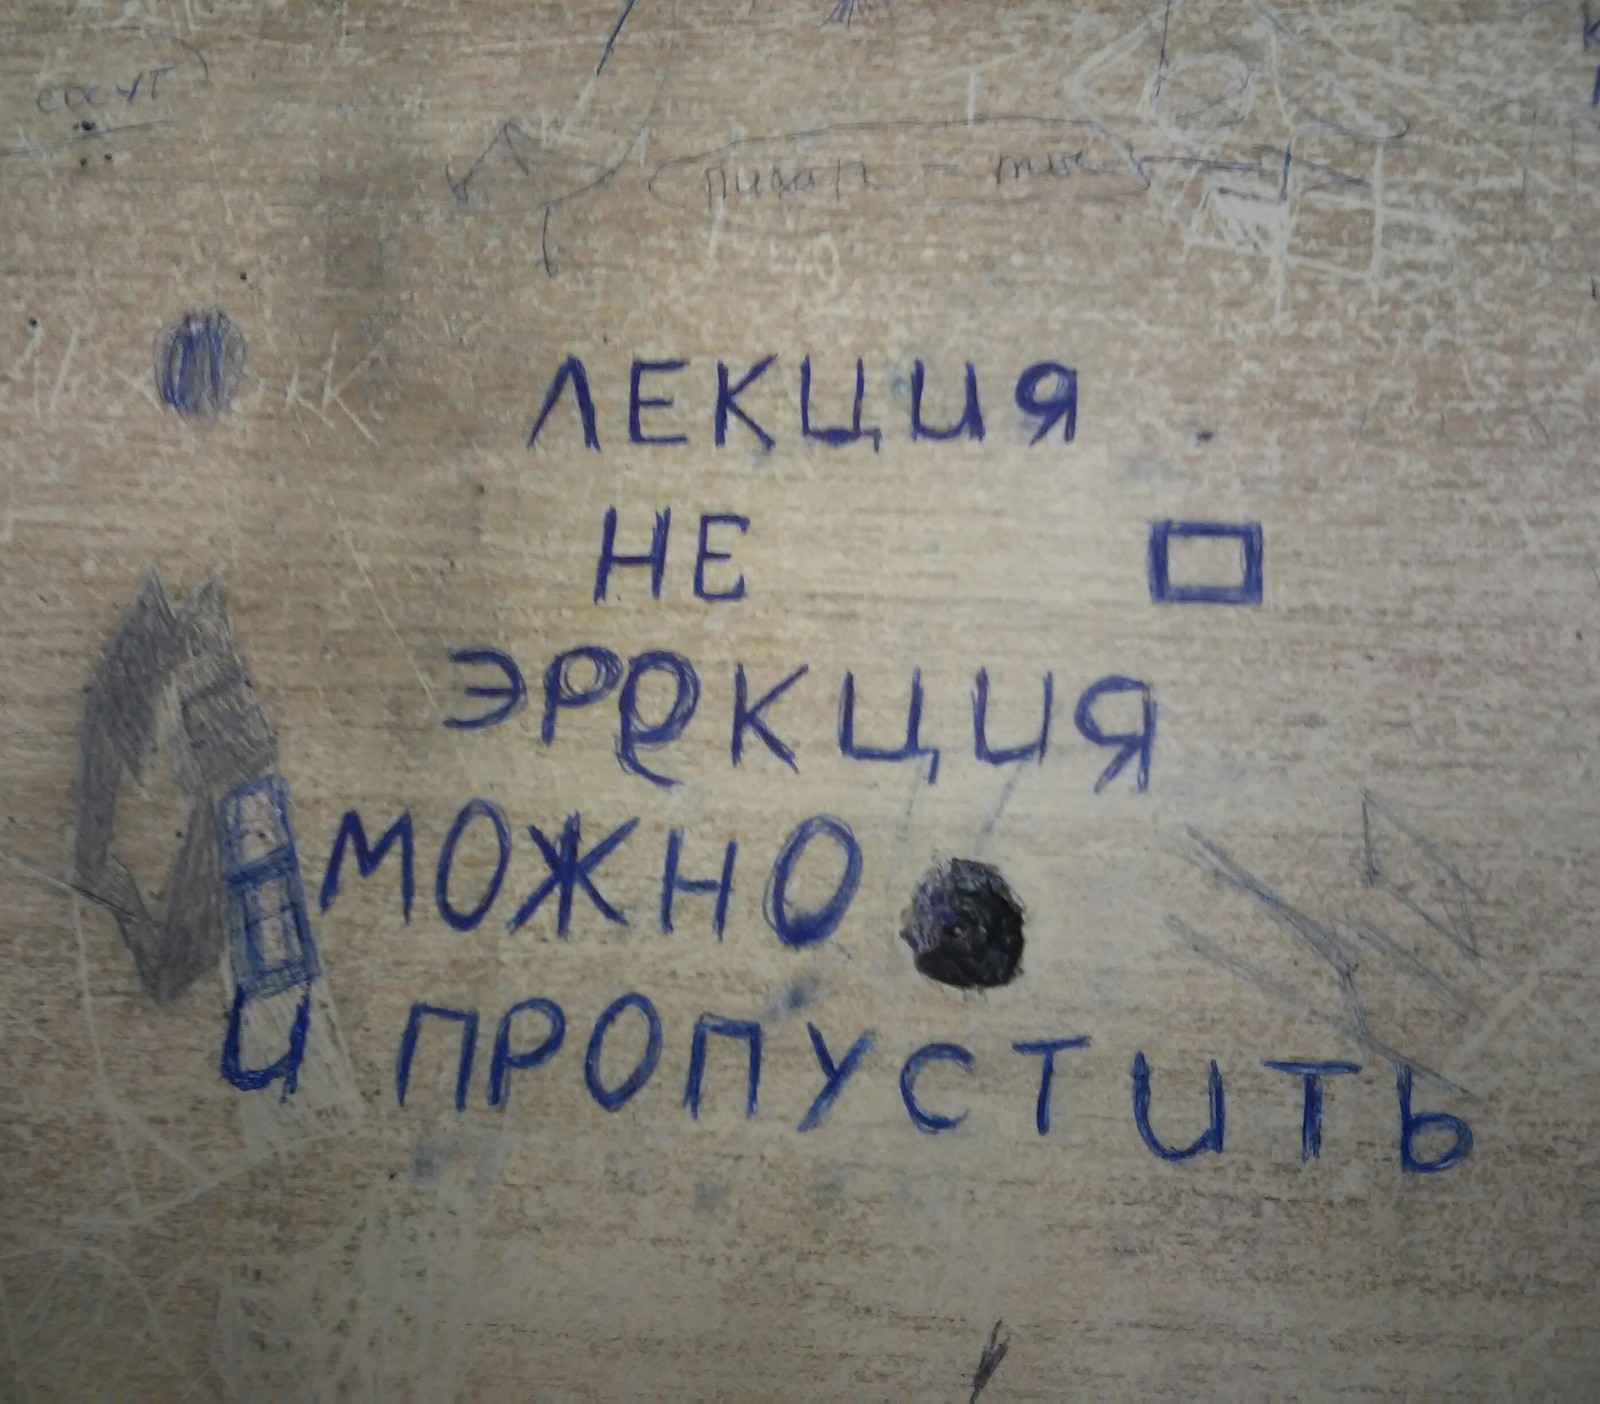 сосут
ЛЕКЦИЯ
НЕ
ЭРеКЦИЯ
МОЖНО
И ПРОПУСТИТЬ